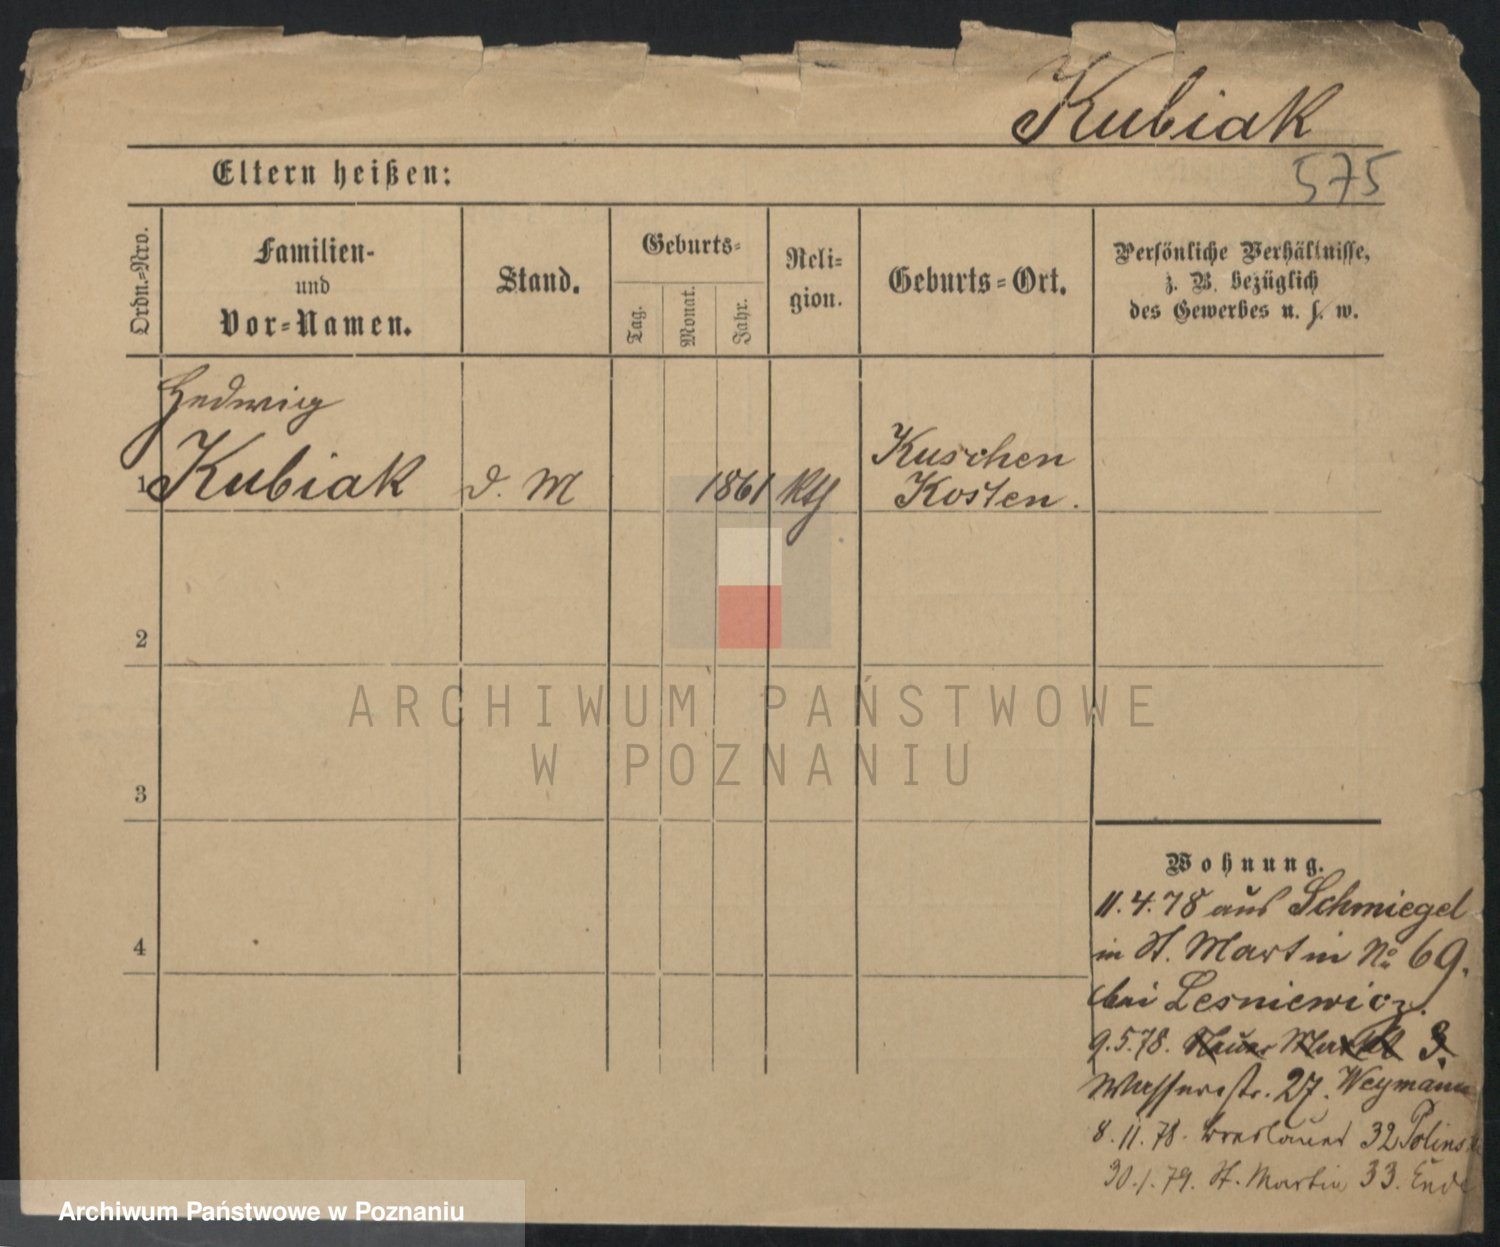 Kubiak
Eltern heißen:
575
Ordn.-Nro.
Familien-
und
Vor-Namen.
Stand.
Geburts-
Tag.
Monat.
Jahr.
Reli-
gion.
Geburts-Ort.
Persönliche Verhältnisse,
z. B. bezüglich
des Gewerbes u. s. w.
Hedwig
1 Kubiak
d. M
1861
Kth
Kuschen
Kosten.
2
3
4
ARCHIWUM PAŃSTWOWE
W POZNANIU
Wohnung.
11.4.78 aus Schmiegel
in St. Martin No 69.
bei Lesniewicz.
9.5.78. Neuer Markt 3.
Wasserstr. 27. Weymann
8.11.78. Breslauer 32
30.1.79. St. Martin 33.
Archiwum Państwowe w Poznaniu